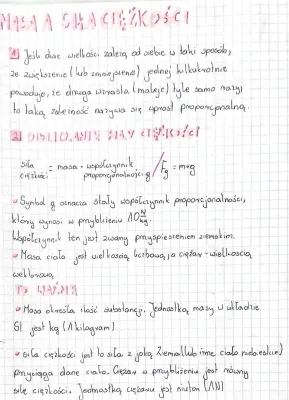 MASA A SIŁA CIĘŻKOŚCI
1 Jeśli dwie wielkości zależą od siebie w taki sposób,
że zwiększenie (lub zmniejszenie) jednej kilkukrotnie
powoduje, że druga wzrasta (maleje) tyle samo razy
to taką zależność nazywa się wprost proporcjonalną.
2 OBLICZANIE SIŁY CIĘŻKOŚCI
siła ciężkości = masa · współczynnik proporcjonalności g / Fg = m·g
Symbol g oznacza stały współczynnik proporcjonalności,
który wynosi w przybliżeniu 10 N/kg.
Współczynnik ten jest zwany przyspieszeniem ziemskim.
Masa ciała jest wielkością liczbową, a ciężar - wielkością
wektorową.
TO WAŻNE
Masa określa ilość substancji. Jednostką masy w układzie
SI jest kg (1 kilogram)
siła ciężkości jest to siła z jaką Ziemia (lub inne ciało niebieskie)
przyciąga dane ciało. Ciężar w przybliżeniu jest równy
sile ciężkości. Jednostką ciężaru jest niuton (1N)